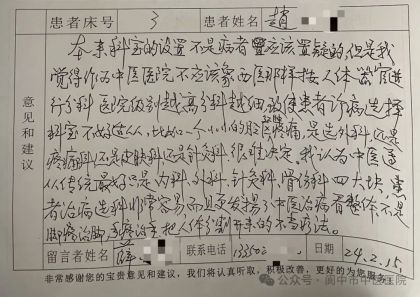 患者床号 3 患者姓名 赵
意见和建议
本来科室的设置不是病者应该置疑的,但是我
觉得作为中医医院不应该象西医那样按人体器官进
行分科医院级别越高分科越细故使患者诊病选择
科室不知所从,比如一个小小的胳膊疼痛,是选外科还是
疼痛科还是皮肤科还是针灸科很难决定,我认为中医遵
从传统最好只是内科、外科、针灸科、骨伤科四大块,患
者治病选科非常容易而且发扬了中医治病看整体不是
脚疼治脚头疼治头把人体分割开来的不当疗法。
留言者姓名 薛 联系电话 13350 日期 24.2.15.
非常感谢您的宝贵意见和建议,我们将认真听取,积极改善,更好的为您服务
公众号·阆中市中医医院